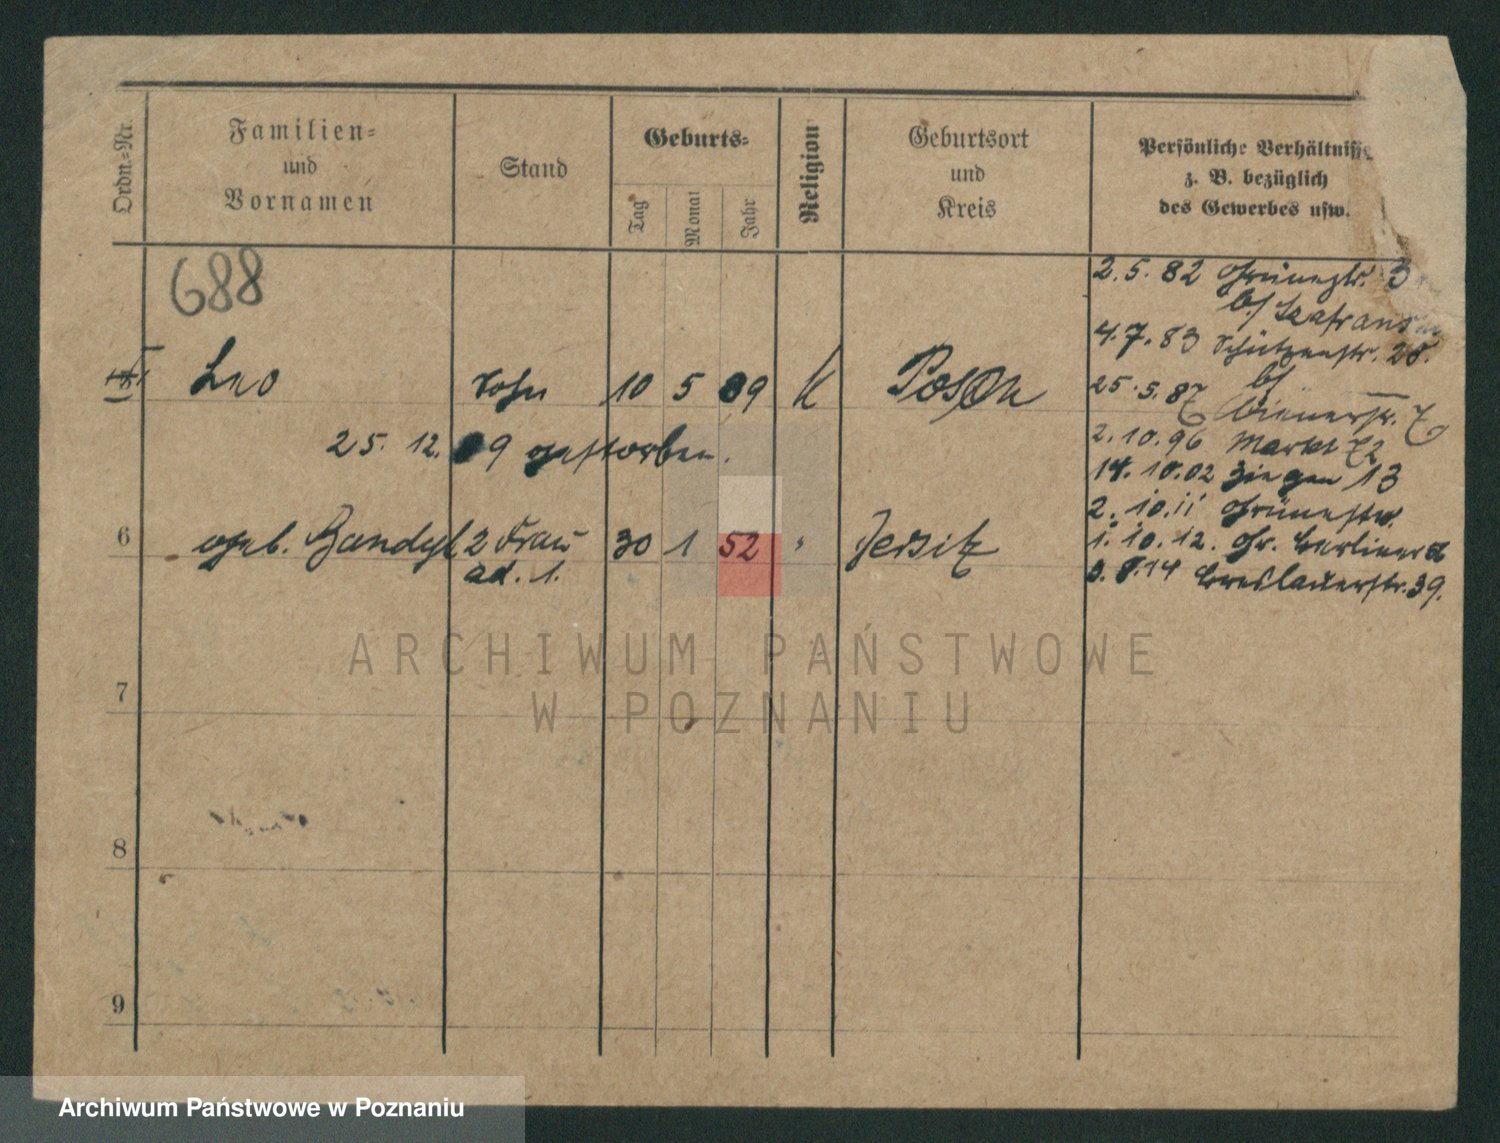 Ordn.=Nr.
Familien=
und
Vornamen
Stand
Geburts=
Tag
Monat
Jahr
Religion
Geburtsort
und
Kreis
Persönliche Verhältnisse
z. B. bezüglich
des Gewerbes usw.
688
2. 5. 82 Grünestr. 3
b/
4. 7. 83 Schützenstr. 28.
Leo Sohn 10 5 09 K Posen
25. 5. 87 Wienerstr. 7
25. 12. 09 gestorben.
2. 10. 96 Markt 72
14. 10. 02 Ziegen 13
2. 10. 11 Grünestr.
6 geb. 2 Frau 30 1 52 " Jersitz
ad. 1.
1. 10. 12. Gr. Berliner
3. 8. 14 Breslauerstr. 39.
7
8
9
ARCHIWUM PAŃSTWOWE
W POZNANIU
Archiwum Państwowe w Poznaniu